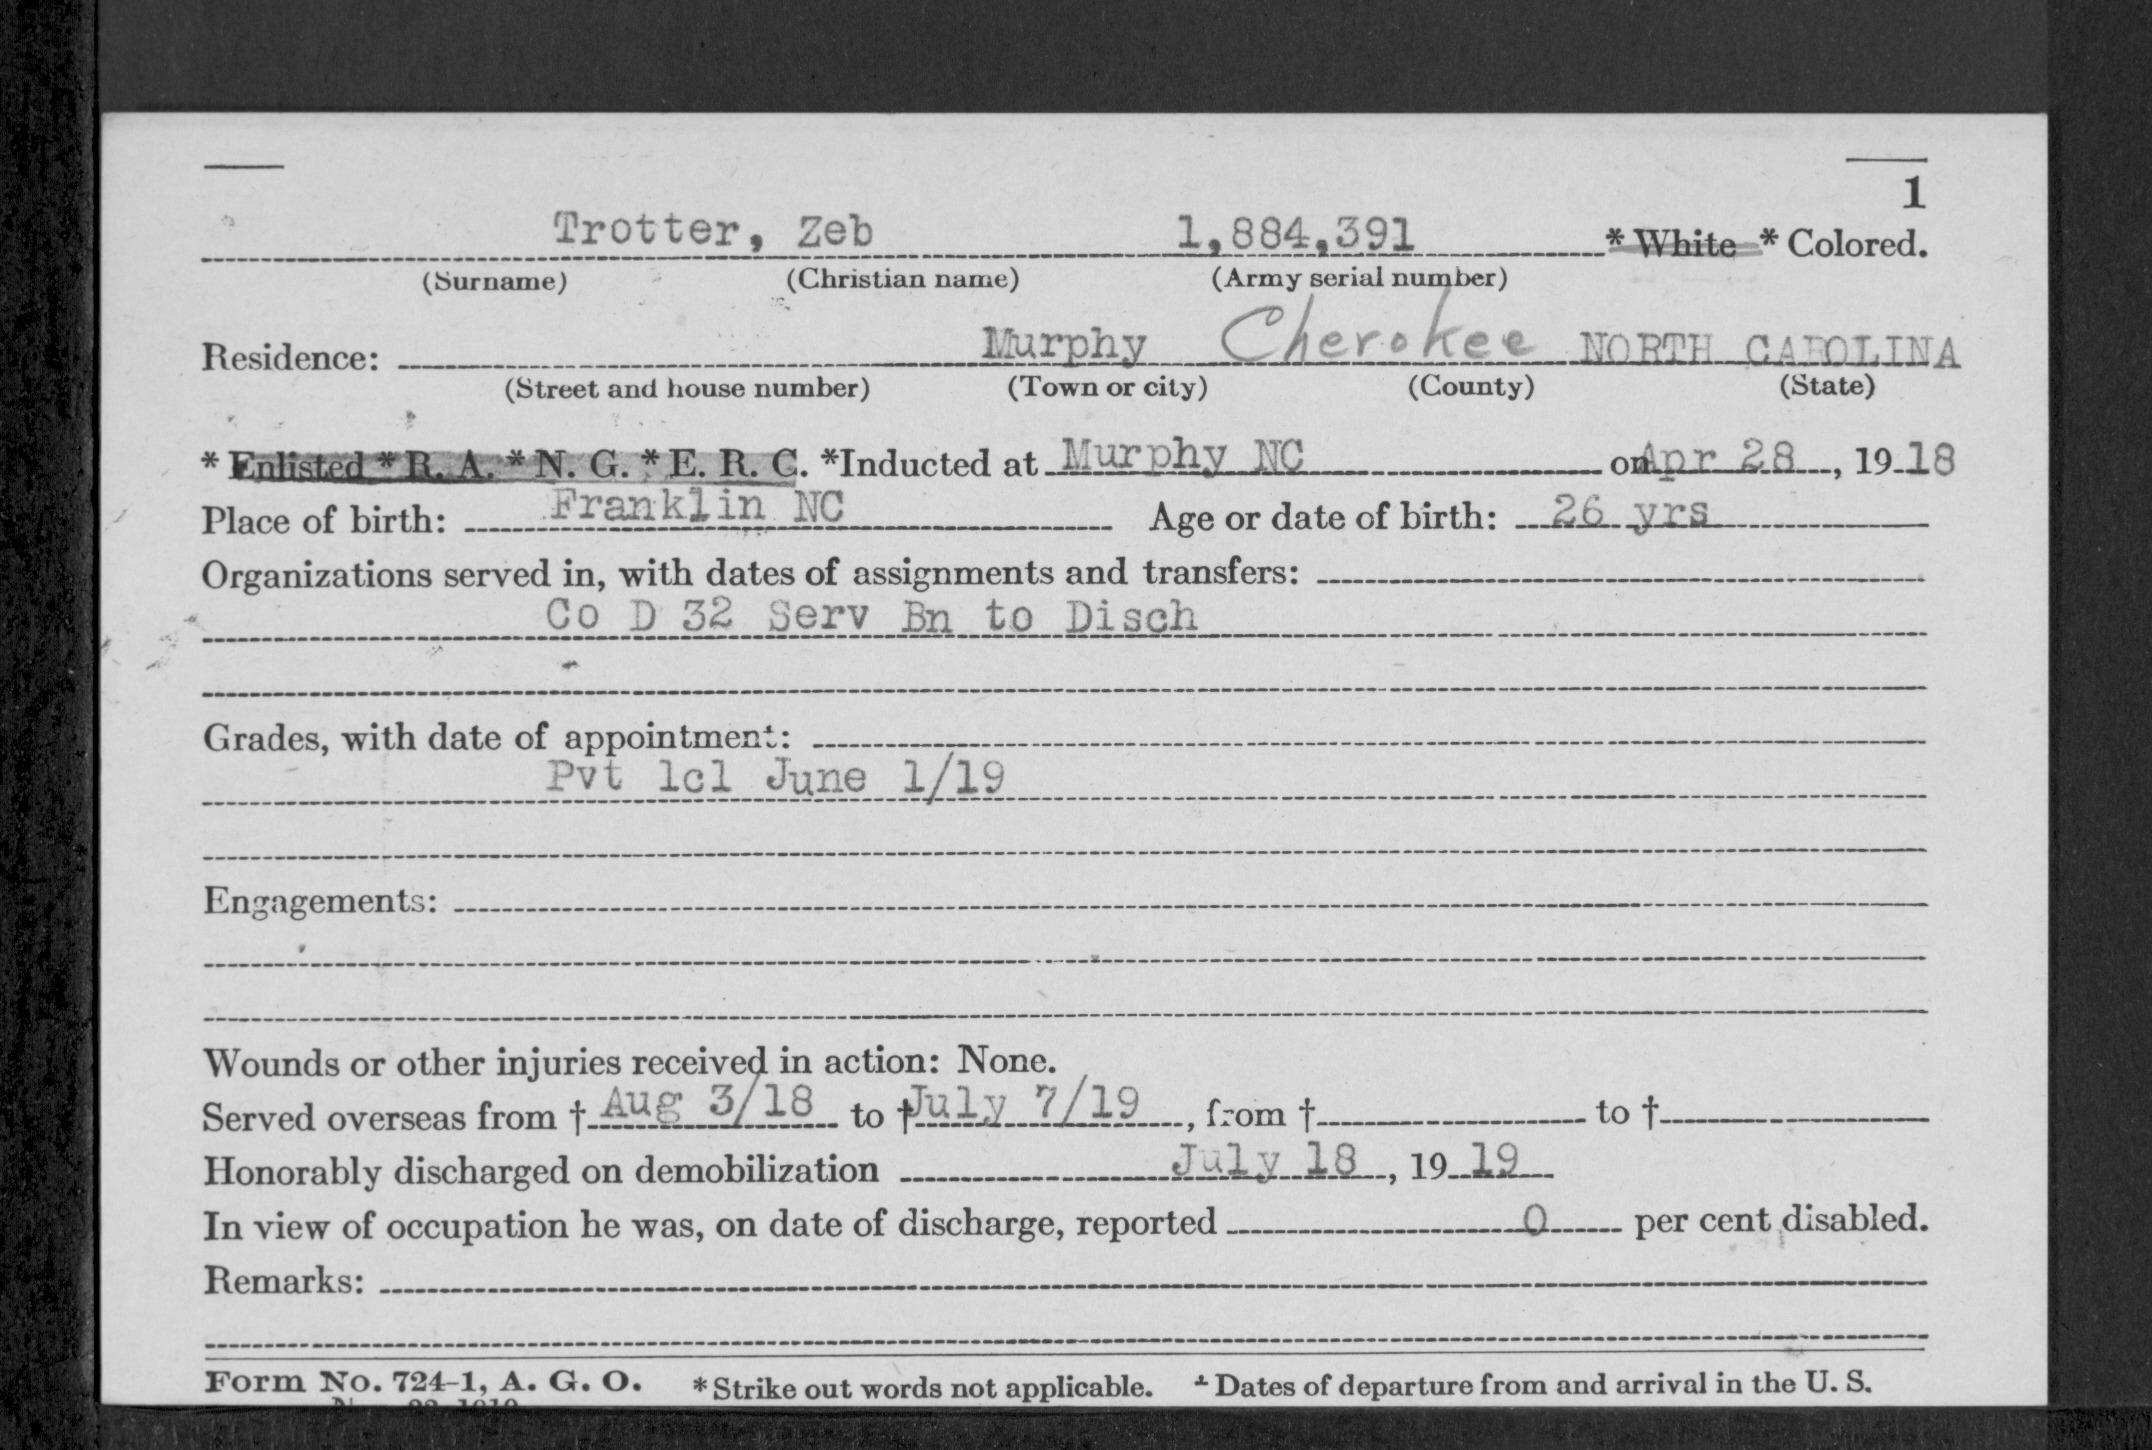 1
Trotter, Zeb 1,884,391 * White * Colored.
(Surname) (Christian name) (Army serial number)
Residence: Murphy Cherokee NORTH CAROLINA
(Street and house number) (Town or city) (County) (State)
* Enlisted * R. A. * N. G. * E. R. C. *Inducted at Murphy NC on Apr 28, 1918
Place of birth: Franklin NC Age or date of birth: 26 yrs
Organizations served in, with dates of assignments and transfers:
Co D 32 Serv Bn to Disch
Grades, with date of appointment:
Pvt 1cl June 1/19
Engagements:
Wounds or other injuries received in action: None.
Served overseas from † Aug 3/18 to † July 7/19, from † to †
Honorably discharged on demobilization July 18, 1919
In view of occupation he was, on date of discharge, reported 0 per cent disabled.
Remarks:
Form No. 724-1, A. G. O. *Strike out words not applicable. † Dates of departure from and arrival in the U. S.